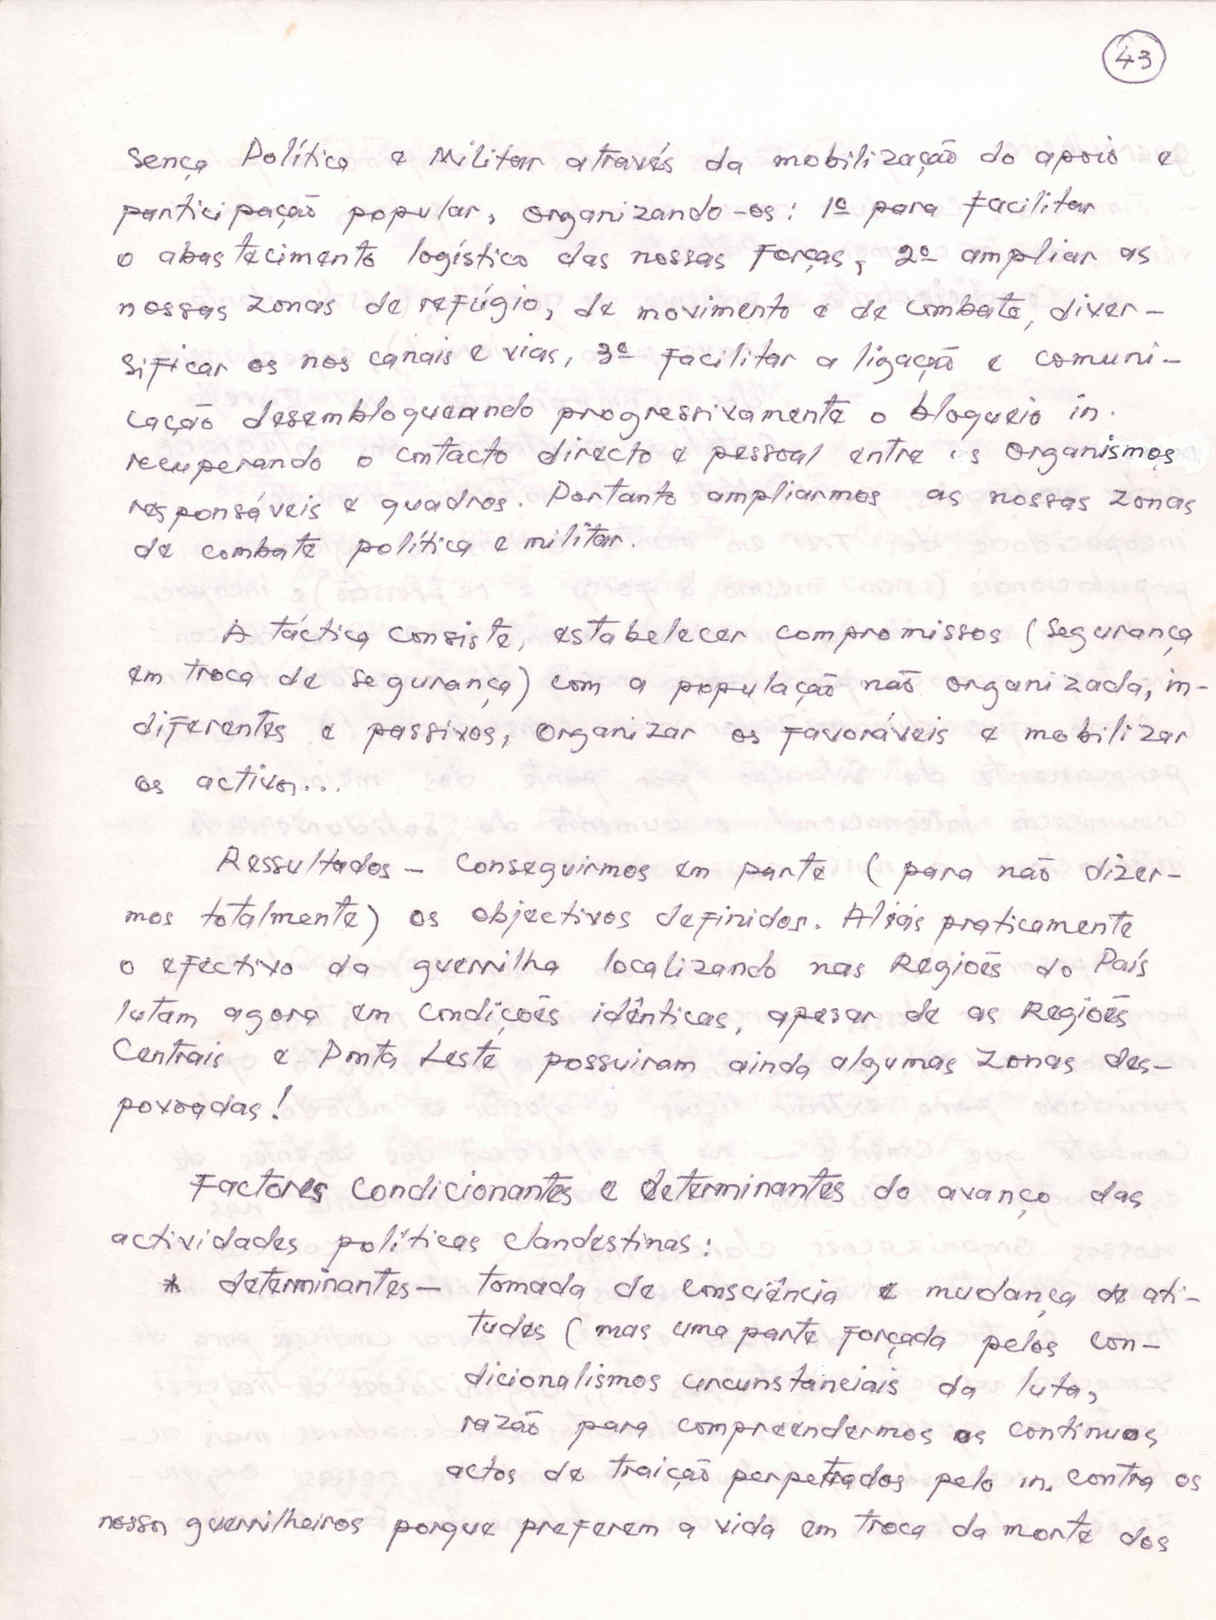 43
sença Política e Militar através da mobilização do apoio e
participação popular, organizando-os: 1º para facilitar
o abastecimento logístico das nossas Forças, 2º ampliar as
nossas zonas de refúgio, de movimento e de combate, diver-
sificar os nos canais e vias, 3º facilitar a ligação e comuni-
cação desembloqueando progressivamente o bloqueio in.
recuperando o contacto directo e pessoal entre os Organismos
responsáveis e quadros. Portanto ampliarmos as nossas zonas
de combate política e militar.
A táctica consiste, estabelecer compromissos (Segurança
em troca de segurança) com a população não organizada, in-
diferentes e passivos, organizar os favoráveis e mobilizar
os activos...
Ressultados - Conseguirmos em parte (para não dizer-
mos totalmente) os objectivos definidos. Aliás praticamente
o efectivo da guerrilha localizando nas Regioẽs do País
lutam agora em condiçoẽs idênticas, apesar de as Regioẽs
Centrais e Ponta Leste possuiram ainda algumas zonas des-
povoadas!
Factores condicionantes e determinantes do avanço das
actividades políticas clandestinas:
* determinantes - tomada de consciência e mudança de ati-
tudes (mas uma parte forçada pelos con-
dicionalismos circunstanciais da luta,
razão para compreendermos os continuos
actos de traição perpetrados pelo in. contra os
nossos guerrilheiros porque preferem a vida em troca da morte dos